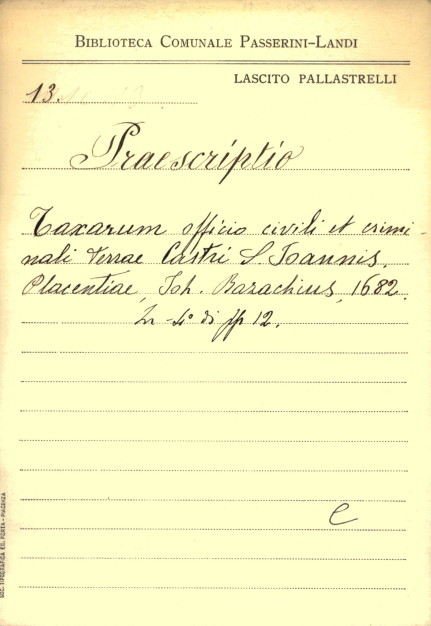 BIBLIOTECA COMUNALE PASSERINI-LANDI
LASCITO PALLASTRELLI
13.
Praescriptio
Taxarum officio civili et crimi-
nali terrae Castri S. Joannis.
Placentiae, Joh. Bazachius, 1682.
In-4° di pp 12.
e
SOC. TIPOGRAFICA ED. PORTA - PIACENZA